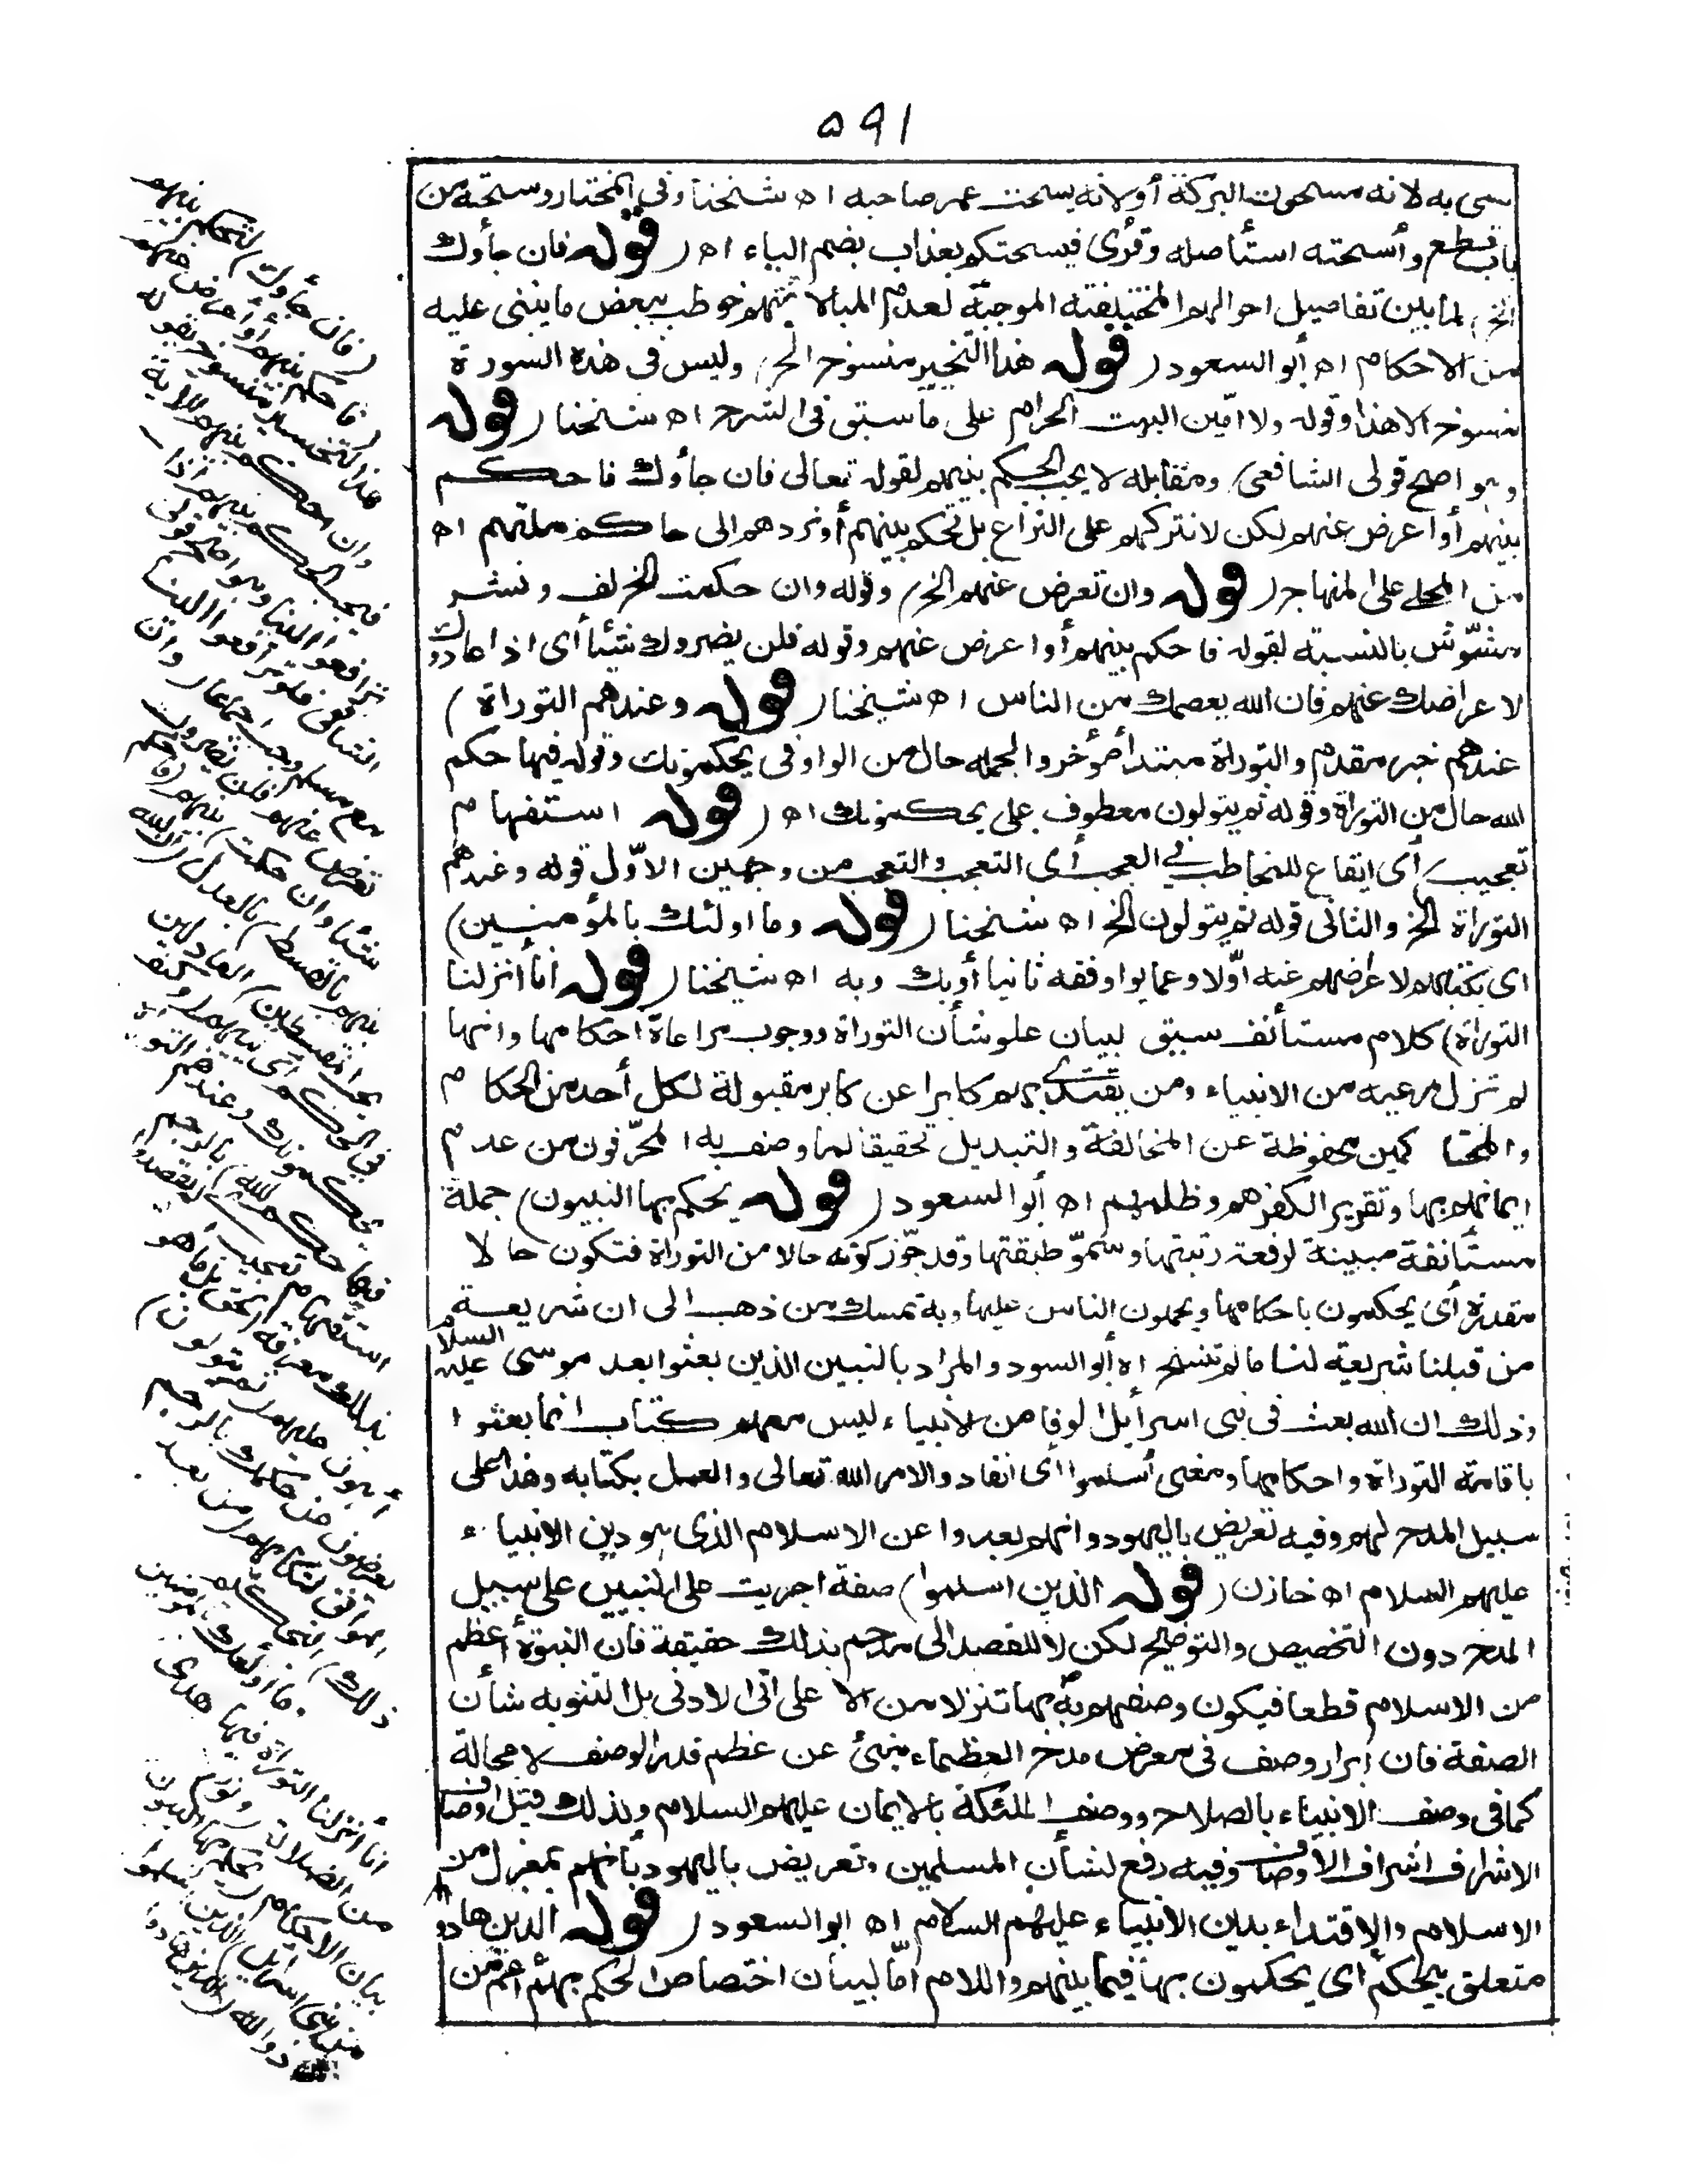 ٥٩١
سمى به لانه مسحوت البركة أو لانه يسحت عمر صاحبه اه شيخنا وفى المختار وسحته من
باب قطع وأسحته استأصله وقرئ فيسحتكم بعذاب بضم الياء اه (قوله فان جاؤك
الخ) لما بين تفاصيل احوالهم المختلفة الموجبة لعدم المبالاة بهم خوطب ببعض ما ينبنى عليه
من الاحكام اه أبو السعود (قوله هذا التخيير منسوخ الخ) وليس فى هذه السورة
منسوخ الا هذا وقوله ولا آمّين البيت الحرام على ما سبق فى الشرح اه شيخنا (قوله
وهو اصح قولى الشافعى) ومقابله لا يجب الحكم بينهم لقوله تعالى فان جاؤك فاحكم
بينهم أو اعرض عنهم لكن لا نتركهم على النزاع بل نحكم بينهم أو نردهم الى حاكم ملتهم اه
من المحلى على المنهاج (قوله وان تعرض عنهم الخ) وقوله وان حكمت الخ لف ونشر
مشوّش بالنسبة لقوله فاحكم بينهم أو اعرض عنهم وقوله فلن يضروك شيئا أى اذا عادوك
لاعراضك عنهم فان الله يعصمك من الناس اه شيخنا (قوله وعندهم التوراة)
عندهم خبر مقدم والتوراة مبتدأ مؤخر والجملة حال من الواو فى يحكمونك وقوله فيها حكم
الله حال من التوراة وقوله ثم يتولون معطوف على يحكمونك اه (قوله استفهام
تعجيب) أى ايقاع للمخاطب فى العجب أى التعجب والتعجب من وجهين الاوّل قوله وعندهم
التوراة الخ والثانى قوله ثم يتولون الخ اه شيخنا (قوله وما اولئك بالمؤمنين)
اى بكتابهم لاعراضهم عنه أوّلا وعما يوافقه ثانيا أو بك وبه اه شيخنا (قوله انا أنزلنا
التوراة) كلام مستأنف سيق لبيان علو شأن التوراة ووجوب مراعاة احكامها وانها
لم تزل مرعية من الانبياء ومن يقتدى بهم كابرا عن كابر مقبولة لكل أحد من الحكام
والمتحاكمين محفوظة عن المخالفة والتبديل تحقيقا لما وصف به المحرّفون من عدم
ايمانهم بها وتقرير الكفرهم وظلمهم اه أبو السعود (قوله يحكم بها النبيون) جملة
مستأنفة مبينة لرفعة رتبتها وسموّ طبقتها وقد جوّز كونه حالا من التوراة فتكون حالا
مقدرة أى يحكمون باحكامها ويحملون الناس عليها وبه تمسك من ذهب الى ان شريعة
من قبلنا شريعة لنا ما لم تنسخ اه أبو السود والمراد بالنبين الذين بعثوا بعد موسى عليه السلام
وذلك ان الله بعث فى بنى اسرائيل الوفا من الانبياء ليس معهم كتاب انما بعثوا
باقامة التوراة واحكامها ومعنى أسلموا أى انقادوا لامر الله تعالى والعمل بكتابه وهذا على
سبيل المدح لهم وفيه تعريض باليهود وانهم بعدوا عن الاسلام الذى هو دين الانبياء
عليهم السلام اه خازن (قوله الذين اسلموا) صفة اجريت على النبيين على سبيل
المدح دون التخصيص والتوضيح لكن لا للقصد الى مدحهم بذلك حقيقة فان النبوّة أعظم
من الاسلام قطعا فيكون وصفهم به بها تنزلا من الاعلى الى الادنى بل التنويه شأن
الصفة فان ابراز وصف فى معرض مدح العظماء منبئ عن عظم قدر الوصف لا محالة
كما فى وصف الانبياء بالصلاح ووصف الملئكة بالايمان عليهم السلام ولذلك قيل اوصاف
الاشراف اشراف الاوصاف وفيه رفع لشأن المسلمين وتعريض باليهود بأنهم بمعزل من
الاسلام والاقتداء بدين الانبياء عليهم السلام اه ابو السعود (قوله الذين هادوا
متعلق بيحكم اى يحكمون بها فيما بينهم واللام امّا لبيان اختصاص الحكم بهم اعم من
(فان جاؤك) لتحكم بينهم
(فاحكم بينهم أو أعرض عنهم
هذا التخيير منسوخ بقوله
وان احكم بينهم الاية
فيجب الحكم بينهم اذا
ترافعوا الينا وهو اصح قولى
الشافعى فلو ترافعوا الينا
مع مسلم وجب اجماعا (وان
تعرض عنهم فلن يضروك
شيئا وان حكمت) بينهم (فاحكم
بينهم بالقسط) بالعدل (ان الله
يحب المقسطين) العادلين
فى الحكم أى يثيبهم (وكيف
يحكمونك وعندهم التوراة
فيها حكم الله) بالرجم
استفهام تعجيب أى لم يقصدوا
بذلك معرفة الحق بل ما هو
أهون عليهم (ثم يتولون)
يعرضون عن حكمك بالرجم
الموافق لكتابهم (من بعد
ذلك) التحكيم
(وما أولئك بالمؤمنين
انا أنزلنا التوراة فيها هدى
من الضلالة (ونور)
بيان الاحكام (يحكم بها النبيون
من بنى اسرائيل (الذين اسلموا
انقادوا لله (للذين هادوا